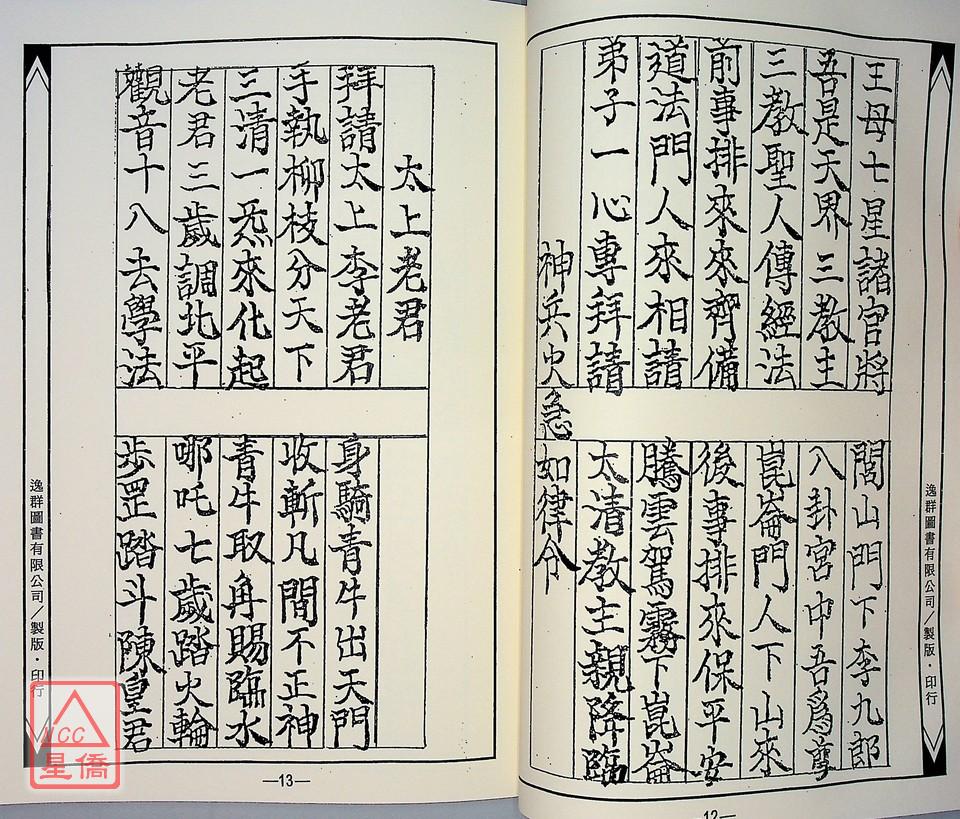 王母七星諸官將 閭山門下李九郎
吾是天界三教主 八卦宮中吾為尊
三教聖人傳經法 崑崙門人下山來
前事排來來齊備 後事排來保平安
道法門人來相請 騰雲駕霧下崑崙
弟子一心專拜請 太清教主親降臨
神兵火急如律令
逸群圖書有限公司/製版·印行
12—
太上老君
拜請太上李老君 身騎青牛出天門
手執柳枝分天下 收斬凡間不正神
三清一炁來化起 青牛取角賜臨水
老君三歲調北平 哪吒七歲踏火輪
觀音十八去學法 步罡踏斗陳皇君
逸群圖書有限公司/製版·印行
—13—
NCC
星僑